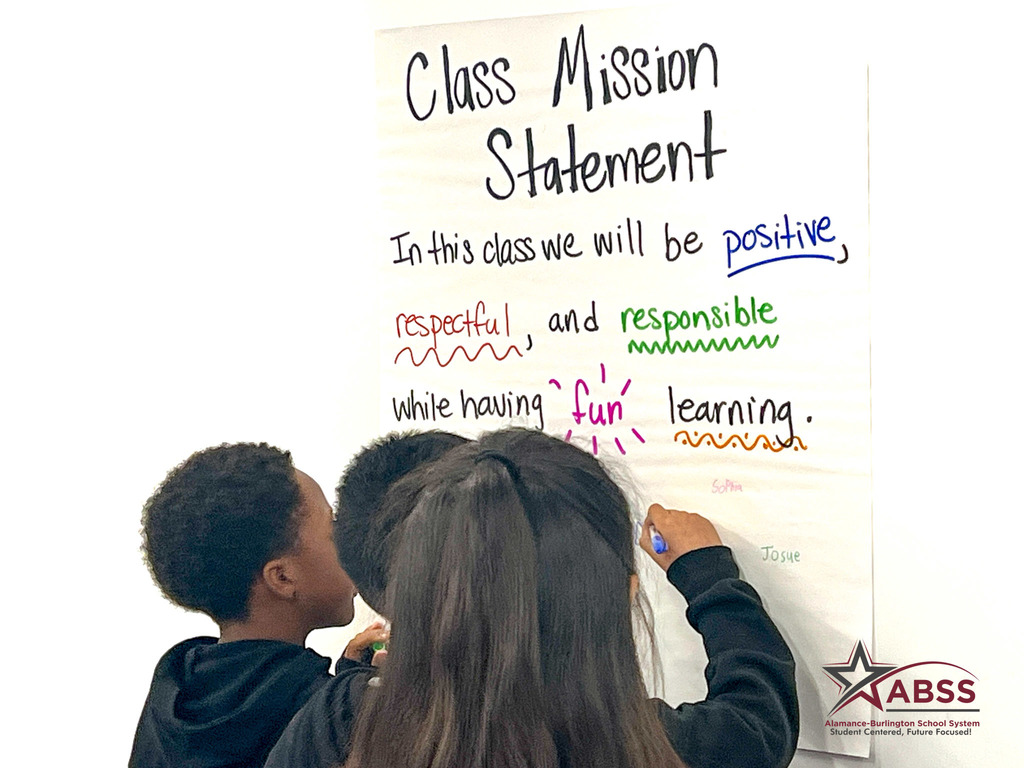 Class Mission
Statement
In this class we will be positive,
respectful, and responsible
while having fun learning.
Sophia
Josue
ABSS
Alamance-Burlington School System
Student Centered, Future Focused!